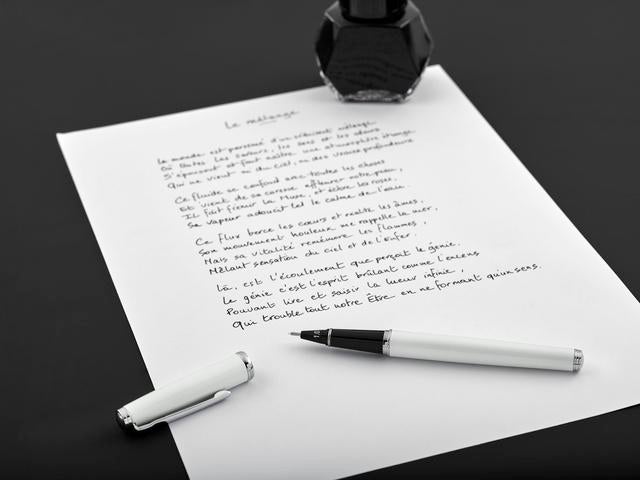 Le mélange
Le monde est parsemé d'un mélange
Où toutes les saveurs, les sens et les odeurs
S'épousent et font naître une atmosphère étrange
Qui ne vient ni du ciel, ni des
Ce fluide se confond avec toutes les choses
Et vient de sa caresse effleurer notre peau,
Il fait frémir la Muse, et éclore les roses,
Sa vapeur adoucit tel le calme de l'eau.
Ce flux berce les cœurs et exalte les âmes,
Son mouvement houleux me rappelle la mer,
Mais sa vitalité remémore les flammes,
Mêlant sensation du ciel et de l'Enfer.
Là, est l'écoulement que perçoit le génie.
Le génie c'est l'esprit brûlant comme l'encens
Pouvant lire et saisir la lueur infinie,
Qui trouble tout notre Être en ne formant qu'un sens.